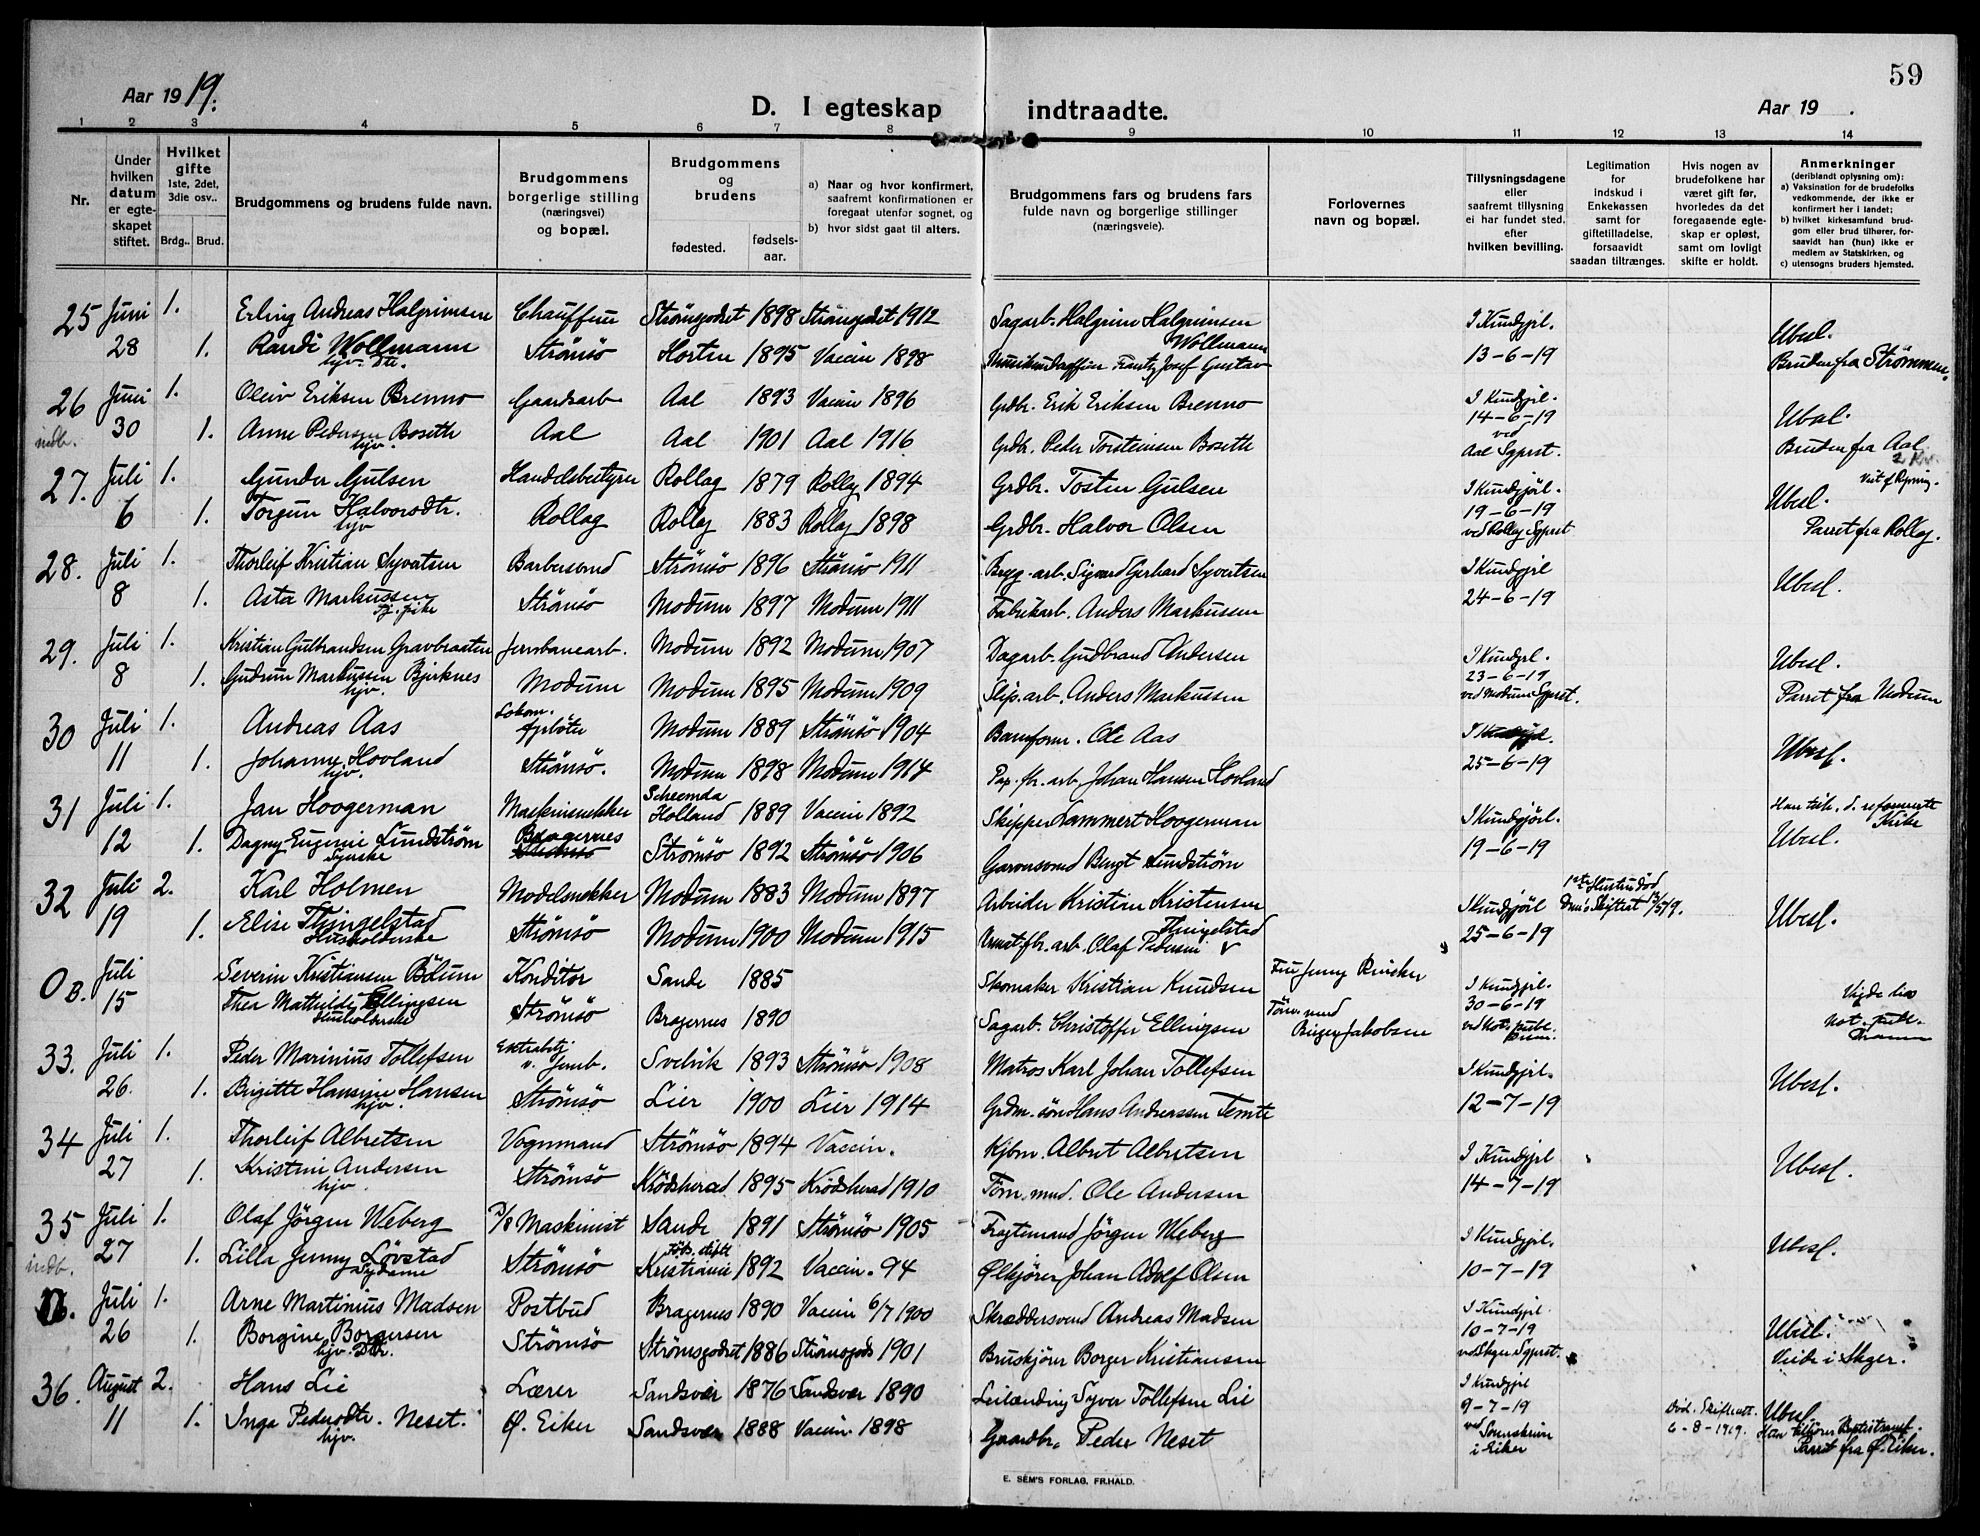 59
Aar 1919.
D. I egteskap indtraadte.
Aar 19 .
1 2 3 4 5 6 7 8 9 10 11 12 13 14
Nr.
Under hvilken datum er egteskapet stiftet.
Hvilket gifte 1ste, 2det, 3die osv..
Brdg.. Brud.
Brudgommens og brudens fulde navn.
Brudgommens borgerlige stilling (næringsvei) og bopæl.
Brudgommens og brudens
fødested. fødsels-aar.
a) Naar og hvor konfirmert, saafremt konfirmationen er foregaat utenfor sognet, og
b) hvor sidst gaat til alters.
Brudgommens fars og brudens fars fulde navn og borgerlige stillinger (næringsveie).
Forlovernes navn og bopæl.
Tillysningsdagene eller saafremt tillysning ei har fundet sted, efter hvilken bevilling.
Legitimation for indskud i Enkekassen samt for giftetilladelse, forsaavidt saadan tiltrænges.
Hvis nogen av brudefolkene har været gift før, hvorledes da det foregaaende egteskap er opløst, samt om lovligt skifte er holdt.
Anmerkninger (deriblandt oplysning om):
a) Vaksination for de brudefolks vedkommende, der ikke er konfirmert her i landet;
b) hvilket kirkesamfund brudgom eller brud tilhører, forsaavidt han (hun) ikke er medlem av Statskirken, og
c) utensogns bruders hjemsted.
25 Juni 1. Erling Andreas Halgrimsen Chauffeur Strømsgodset 1898 Strømsgodset 1912 Sagarb. Halgrim Halgrimsen I Kundgjel. Ubesl.
28 1. Randi Wollmann Strømsø Horten 1895 Vaccin 1898 Frantz Josef Gustav Wollmann 13-6-19 Bruden fra Strømmen.
hjv. Dtr.
26 Juni 1. Oleiv Eriksen Brenno Gaardsarb Aal 1893 Vaccin 1896 Grdbr. Erik Eriksen Brenno I Kundgjel. 14-6-19 Ubesl.
indb. 30 1. Anne Pedersen Boseth Aal Aal 1901 Aal 1916 Grdbr. Peder Torsteinsen Boseth ved Aal Sgprst. Bruden fra Aal
hjv.
27. Juli 1. Gunder Gulsen Handelsbestyrer Rollag 1879 Rollag 1894 Grdbr. Tosten Gulsen I Kundgjørl. Ubesl.
6 1. Torgun Halvorsdtr. Rollag Rollag 1883 Rollag 1898 Grdbr. Halvor Olsen 19-6-19 ved Rollag Sgprst Parret fra Rollag.
hjv
28. Juli 1. Thorleif Kristian Syvertsen Barbersvend Strømsø 1896 Strømsø 1911 Brygg-arb. Sigvard Gerhard Syvertsen I Kundgjel Ubesl.
8 1. Asta Markussen Strømsø Modum 1897 Modum 1911 Fabrikarb. Anders Markussen 24-6-19
29. Juli 1. Kristian Gulbrandsen Gravbraaten Jernbanearb. Modum 1892 Modum 1907 Dagarb. Gudbrand Andersen I Kundgjel. Ubesl.
8 1. Gudrun Markussen Bjerknes Modum Modum 1895 Modum 1909 Slip.arb. Anders Markussen 23-6-19 ved Modum Sgprst. Parret fra Modum
hjv.
30 Juli 1. Andreas Aas Lokom. fyrbøter Modum 1889 Strømsø 1904 Baneform. Ole Aas I Kundgjel. Ubesl.
11 1. Johanne Hovland Strømsø. Modum 1898 Modum 1914 Pap.fbr.arb. Johan Hansen Hovland 25-6-19
hjv.
31 Juli 1. Jan Hoogerman Maskinsnekker Scheemda Holland 1889 Vaccin 1892 Skipper Lammert Hoogerman I Kundgjørl. Han tilh. d. reformerte Kirke
12 1. Dagny Eugenie Lundstrøm Bragernes Strømsø 1892 Strømsø 1906 Garversvend Bengt Lundstrøm 19-6-19 Ubesl.
Syerske
32 Juli 2. Karl Holmen Modelsnekker Modum 1883 Modum 1897 Arbeider Kristian Kristensen I Kundgjørl Ubesl.
19 1. Elise Thingelstad Strømsø Modum 1900 Modum 1915 Olaf Pedersen Thingelstad 25-6-19
Husholderske
O B. Juli Severin Kristiansen Bølum Konditor Sande 1885 Skomaker Kristian Knudsen Fru Jenny I Kundgjel.
15 Thea Mathilde Ellingsen Strømsø Bragernes 1890 Sagarb. Christoffer Ellingsen Tøm.mnd Birger Jakobsen 30-6-19 ved Not. publ. Dram.
Husholderske
33. Juli 1. Peder Marinius Tollefsen Svelvik 1893 Strømsø 1908 Matros Karl Johan Tollefsen I Kundgjel. Ubesl.
26. 1. Brigitte Hansine Hansen Strømsø Lier 1900 Lier 1914 Grdm.søn Hans Anderssen Temte 12-7-19
hjv.
34 Juli 1. Thorleif Albretsen Vognmand Strømsø 1894 Vaccin. Kjbm. Albert Albretsen I Kundgjel Ubesl.
27 1. Kristine Andersen Strømsø Krødsherad 1895 Krødsherad 1910 Tøm.mnd. Ole Andersen 14-7-19
hjv.
35 Juli 1. Olaf Jørgen Weberg Maskinist Sande 1891 Strømsø 1905 Fragtemand Jørgen Weberg I Kundgjel. Ubesl.
indb. 27 1. Lilla Jenny Løvstad Strømsø Føds.stift. Kristiania 1892 Vaccin. 94 Ølkjører Johan Adolf Olsen 10-7-19
Sydame
Juli 1. Arne Martinius Madsen Postbud Bragernes 1890 Vaccin 6/7 1900 Skræddersvend Andreas Madsen I Kundgjel. Ubesl.
26 1. Borgine Borgersen Strømsø Strømsgodset 1886 Strømsgods 1901 Bruskjører Borger Kristiansen 10-7-19 ved Skger Sgprst. Viede i Skger.
hjv. Dtr.
36. August 2. Hans Lie Lærer Sandsvær 1876 Sandsvær 1890 Leilænding Syver Tollefsen Lie I Kundgjel 9-7-19 Død. Skifteatt. 6-8-1919. Ubesl.
11 1. Inga Pedersdtr. Neset. Ø. Eiker Sandsvær 1888 Vaccin. 1898 Gaardbr. Peder Neset ved Sorenskriv i Eiker Parret fra Ø. Eiker.
hjv.
E. SEM'S FORLAG, FR.HALD.